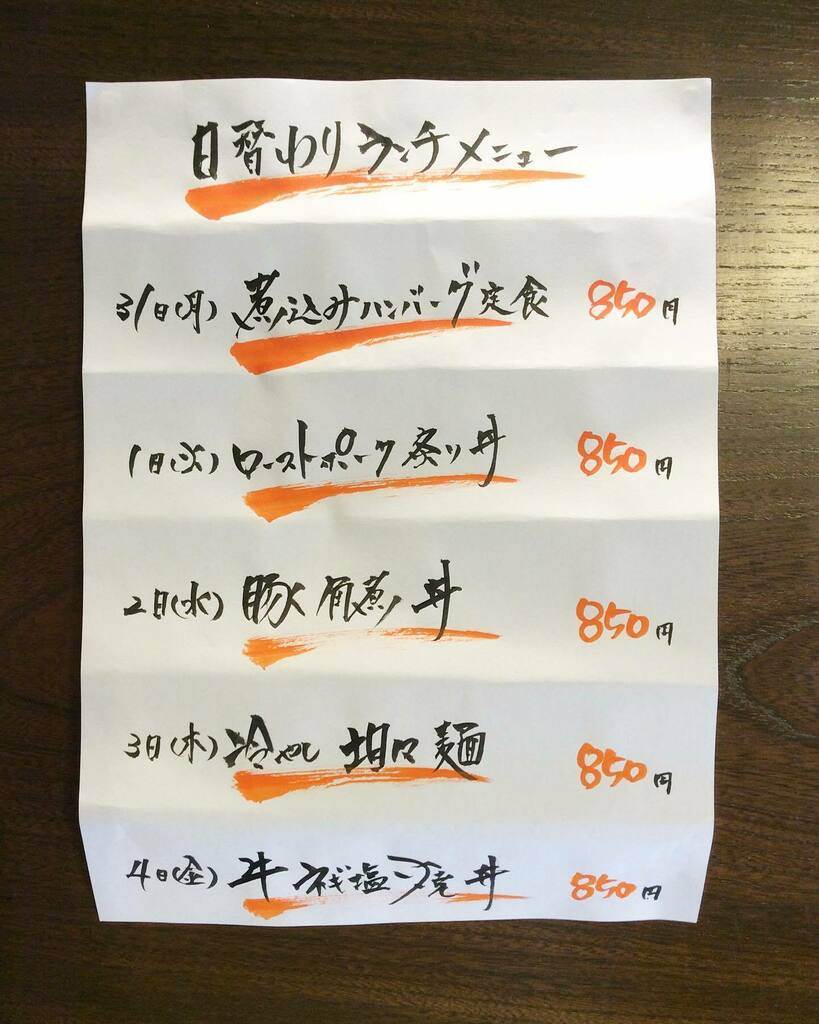 日替わりランチメニュー
31日(月) 煮込みハンバーグ定食 850円
1日(火) ローストポーク祭り丼 850円
2日(水) 豚角煮丼 850円
3日(木) 冷やし坦々麺 850円
4日(金) 牛ネギ塩焼丼 850円